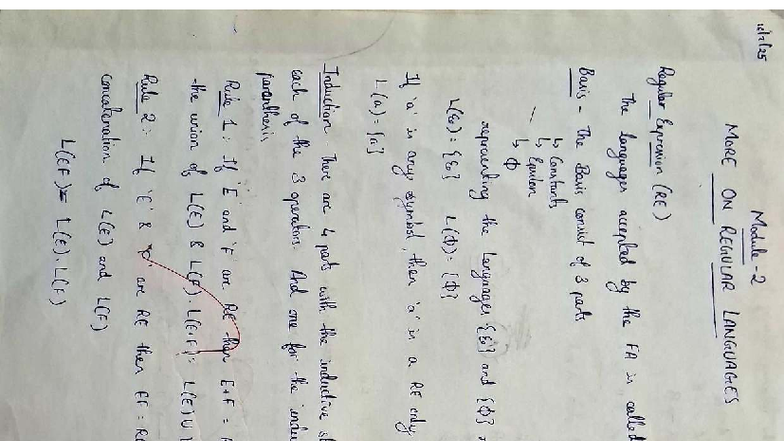 16/2/25
Module-2
MORE ON REGULAR LANGUAGES
Regular Expression (RE)
The languages accepted by the FA is called
Basis - The Basis consist of 3 parts
↳ Constants
↳ Epsilon
↳ Φ
representing the languages {ε} and {Φ}
L(ε) = {ε} L(Φ) = {Φ}
If 'a' is any symbol, then 'a' is a RE only
L(a) = {a}
Induction - There are 4 parts with the inductive
each of the 3 operators. And one for the
parenthesis
Rule 1: If 'E' and 'F' are RE then E+F =
the union of L(E) & L(F). L(E+F) = L(E) ∪
Rule 2: If 'E' & 'F' are RE then EF =
Concatenation of L(E) and L(F)
L(EF) = L(E).L(F)